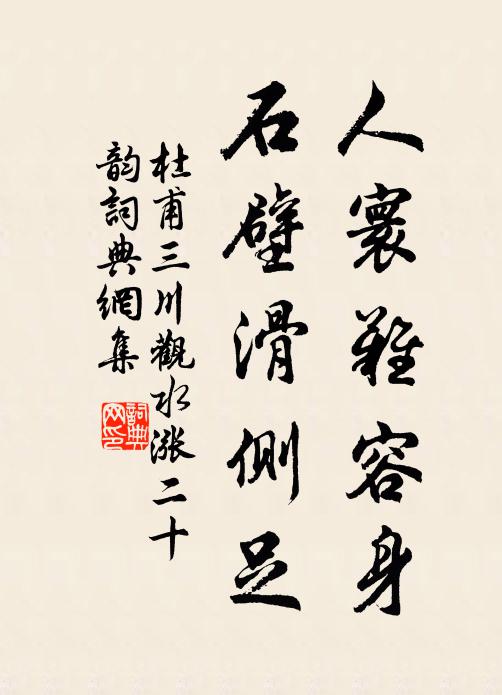 人寰難容身
石壁滑側足
杜甫三川觀水漲二十
韵詞典網集
詞典网印